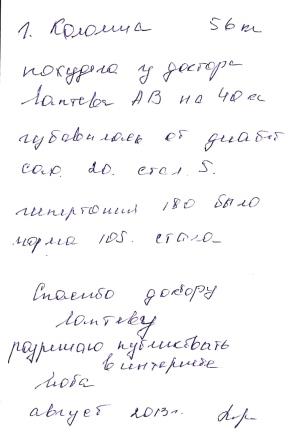 г. Коломна 56 кг
похудела у доктора
Лаптева АВ на 40 кг
избавилась от диабет
сах. 20. стал 5.
гипертония 180 было
норма 105. стало
Спасибо доктору
Лаптеву
разрешаю публиковать
в интернете
Люба
август 2013 г.